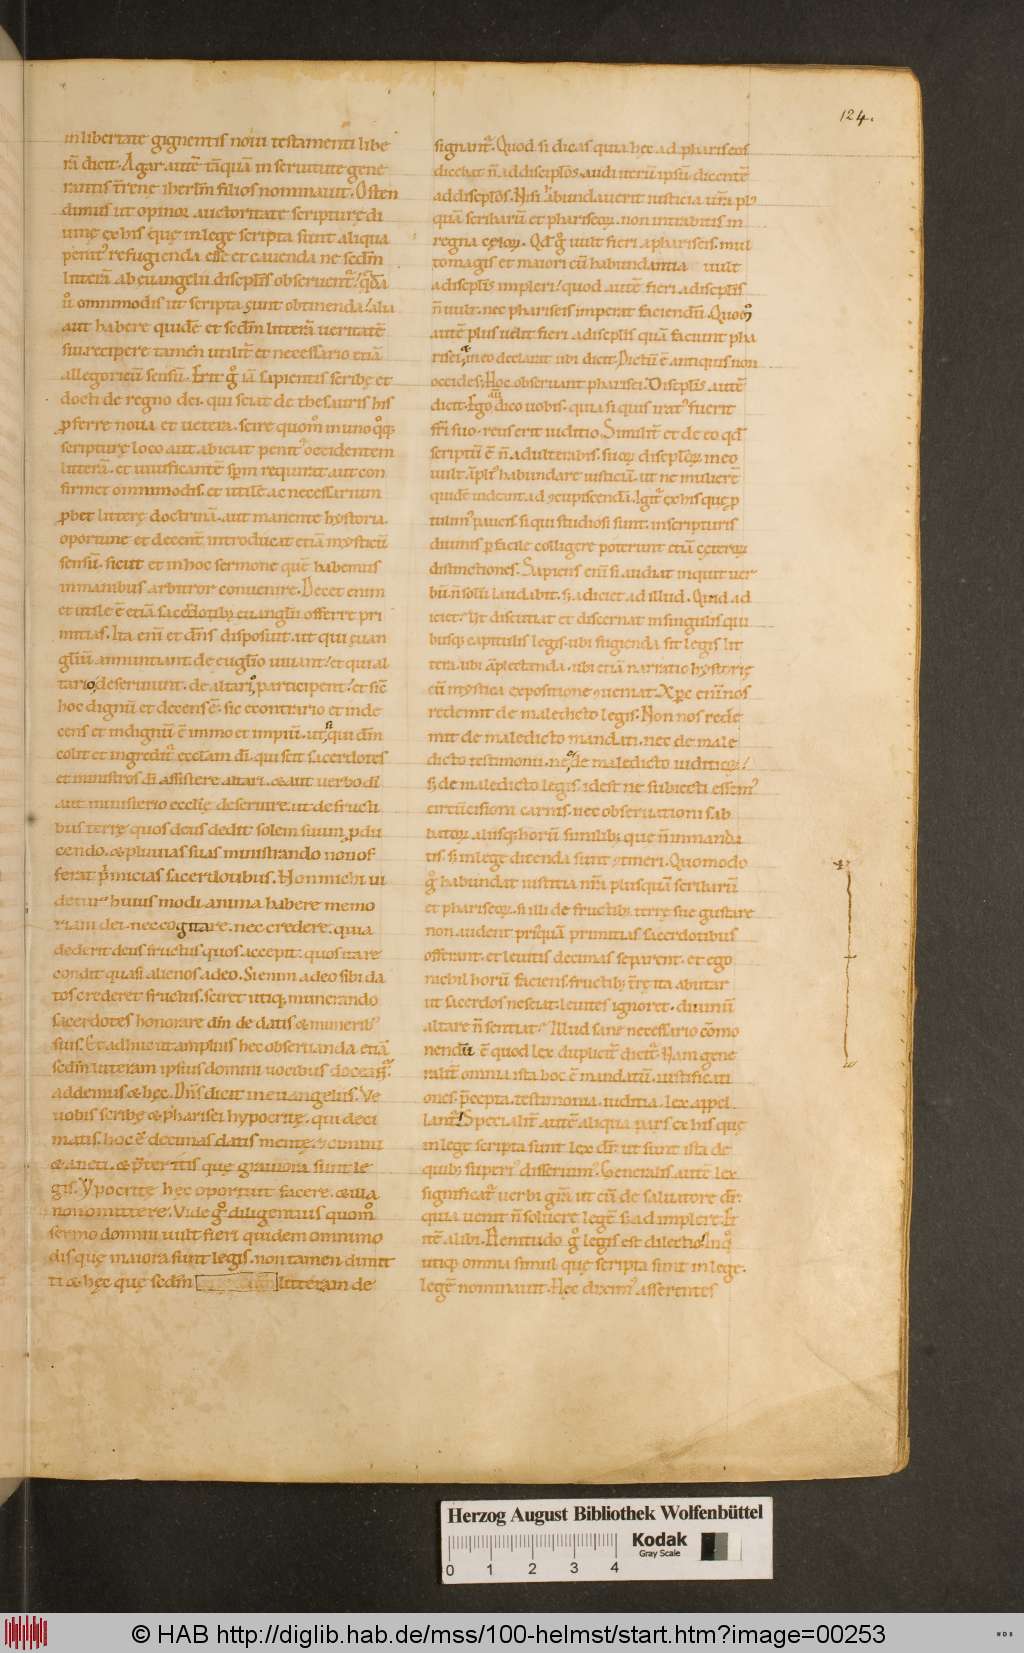 124.
in libertate gignentis noui testamenti libe
rā dicit. Agar autē tāquā in seruitute gene
rantis t̄renę ihrl̄m filios nominauit. Osten
dimus ut opinor auctoritate scripturę di
uinę ex his quę in lege scripta sunt aliqua
penit᷒ refugienda esse et cauenda ne sedm̄
litterā ab euangelii discipl̄is obseruent᷑.
u̾ omnimodis ut scripta sunt obtinenda. alia
aut habere quidē et sedm̄ litterā ueritatē
siu recipere tamen utilit̄ et necessario etiā
allegoricū sensū. Erit gͦ iā sapientis scribę et
docti de regno dei. qui sciat de thesauris his
ꝓferre noua et uetera. scire quom̄ in unoqͦq;
scripturę loco aut abiciat penit᷒ occidentem
litterā. et uiuificantē sp̄m requirat. aut con
firmet omnimodis. et utilē ac necessariam
ꝓbet litterę doctrinā. aut manente hystoria.
oportune et decent̄ introducat etiā mysticū
sensū. sicut et in hoc sermone quē habemus
in manibus arbitror conuenire. Decet enim
et utile ē etiā sacerdotib; euangl̄ii offerre pri
mitias. Ita eni̅ et dn̄s disposuit. ut qui euan
gl̄iū annuntiant. de eugl̄io uiuant. et qui al
tario deseruiunt. de altario participent. et sic̄
hoc dignū et decens ē. sic econtrario et inde
cens et indignū ē immo et impiū. ut si qui dm̄
colit et ingredit᷑ eccl̄am dī. qui scit sacerdotes
et ministros dī assistere altari. & aut uerbo dī
aut ministerio eccl̄ię deseruire. ut de fructi
bus terrę quos deus dedit solem suum ꝓdu
cendo. & pluuias suas ministrando non of
ferat p̾micias sacerdotibus. Hon michi ui
detur huius modi anima habere memo
riam dei. nec cogitare. nec credere. quia
dederit deus fructus quos accepit. quos ita re
condit quasi alienos a deo. Si enim a deo sibi da
tos crederet fructus. sciret utiq; munerando
sacerdotes honorare dm̄ de datis & munerib᷒
suis. Et adhuc ut amplius hec obseruanda etiā
sedm̄ litteram ipsius domini uocibus doceat᷑.
addemus & hęc. Dn̄s dicit in euangeliis. Ve
uobis scribę & pharisei hypocritę. qui deci
matis. hoc ē decimas datis mentę. & cimini
& aneti. & p̄teritis quę grauiora sunt le
gis. Ypocritę hęc oportuit facere. & illa
non omittere. Vide gͦ diligentius quom̄
sermo domini uult fieri quidem omnimo
dis quę maiora sunt legis. non tamen dimit
ti & hęc quę sedm̄ litteram de
signant᷑. Quod si dicas quia hęc ad phariseos
dicebat n̄ ad discipl̄os. audi iterū ipsū dicentē
ad discipl̄os. Nisi habundauerit iusticia ur̄a pl᷒
quā scribarū et phariseoꝝ. non intrabitis in
regna cęloꝝ. Qd̄ gͦ uult fieri a phariseis. mul
to magis et maiori cū habundantia uult
a discipl̄is impleri. quod autē fieri a discipl̄is
n̄ uult. nec phariseis imperat faciendū. Quom̄
autē plus uelit fieri a discipl̄is quā faciunt pha
risei. in eo declarat ubi dicit. Dictū ē antiquis non
occides. Hoc obseruant pharisei. Discipl̄is autē
dicit. Ego autē dico uobis. quia si quis irat᷒ fuerit
fr̄i suo. reus erit iuditio. Similit̄ et de eo qd̄
scriptū ē n̄ adulterabis. suoꝝ discipl̄oꝝ in eo
uult āpli᷒ habundare iusticiā. ut ne mulierē
quidē uideant ad ꝯcupiscendā. Igit᷑ ex his quę ꝓ
tulim᷒ paucis si qui studiosi sunt. in scripturis
diuinis ꝑfacile colligere poterunt etiā cęteraꝝ
distinctiones. Sapiens eni̅ si audiat inquit uer
bū. n̄ solū laudabit. s; adiciet ad illud. Quid ad
iciet. Ut discutiat et discernat in singulis qui
busq; capitulis legis. ubi fugienda sit legis lit
tera. ubi āplectenda. ubi etiā narratio hystorię
cū mystica expositione ꝯueniat. Xp̄c enī nos
redemit de maledicto legis. Non nos rede
mit de maledicto mandati. nec de male
dicto testimonii. nec de maledicto iuditioꝝ.
s; de maledicto legis. idest ne subiecti essem᷒
circūcisioni carnis. nec obseruationi sab
batoꝝ. aliisq; horū similib; que n̄ in manda
tis. s; in lege dicenda sunt ꝯtineri. Quomodo
gͦ habundat iustitia nr̄a plusquā scribarū
et phariseoꝝ. si illi de fructib; terrę suę gustare
non audent priusquā primitias sacerdotibus
offerant. et leuitis decimas separent. et ego
nichil horū faciens. fructib; t̄rę ita abutar
ut sacerdos nesciat. leuites ignoret. diuinū
altare n̄ sentiat. Illud sane necessario cōmo
nendū ē quod lex duplicit̄ dicit᷑. Nam gene
ralit̄ omnia ista hoc ē mandatū. iustificati
ones. p̄cepta. testimonia. iuditia. lex appel
lant᷑. Specialit̄ autē aliqua pars ex his quę
in lege scripta sunt lex dr̄. ut sunt ista de
quib; superi᷒ disseruim᷒. Generalis autē lex
significat᷑ uerbi grā. ut cū de saluatore dr̄.
quia uenit n̄ soluere legē s; adimplere. Et
itē alibi. Plenitudo gͦ legis est dilectio. Inqͦ
utiq; omnia simul quę scripta sunt in lege.
legē nominauit. Hęc dixim᷒ asserentes
Herzog August Bibliothek Wolfenbüttel
Kodak
Gray Scale
0 1 2 3 4
© HAB http://diglib.hab.de/mss/100-helmst/start.htm?image=00253